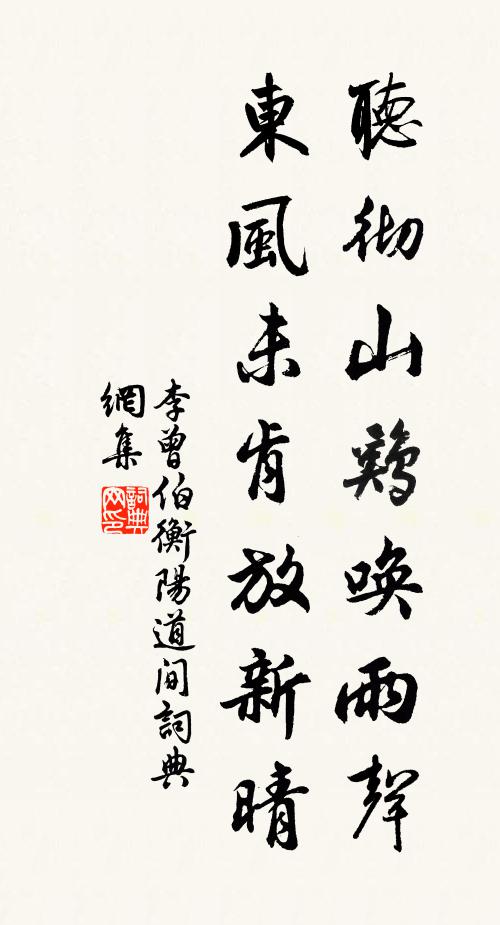 聽彻山鷄喚雨聲
東風未肯放新晴
李曾伯衡陽道间詞典
網集
詞典
网印